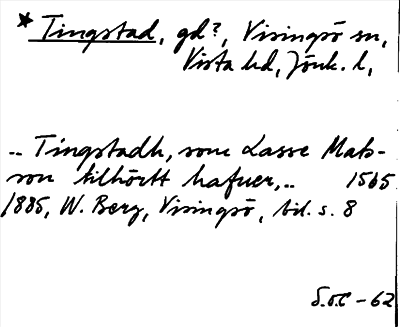 * Tingstad, gd?, Visingsö sn,
Vista hd, Jönk. l,
.. Tingstadh, som Lasse Mats-
son tilhörtt hafuer,.. 1565
1885, W. Berg, Visingsö, bil. s. 8
S.o.C - 62